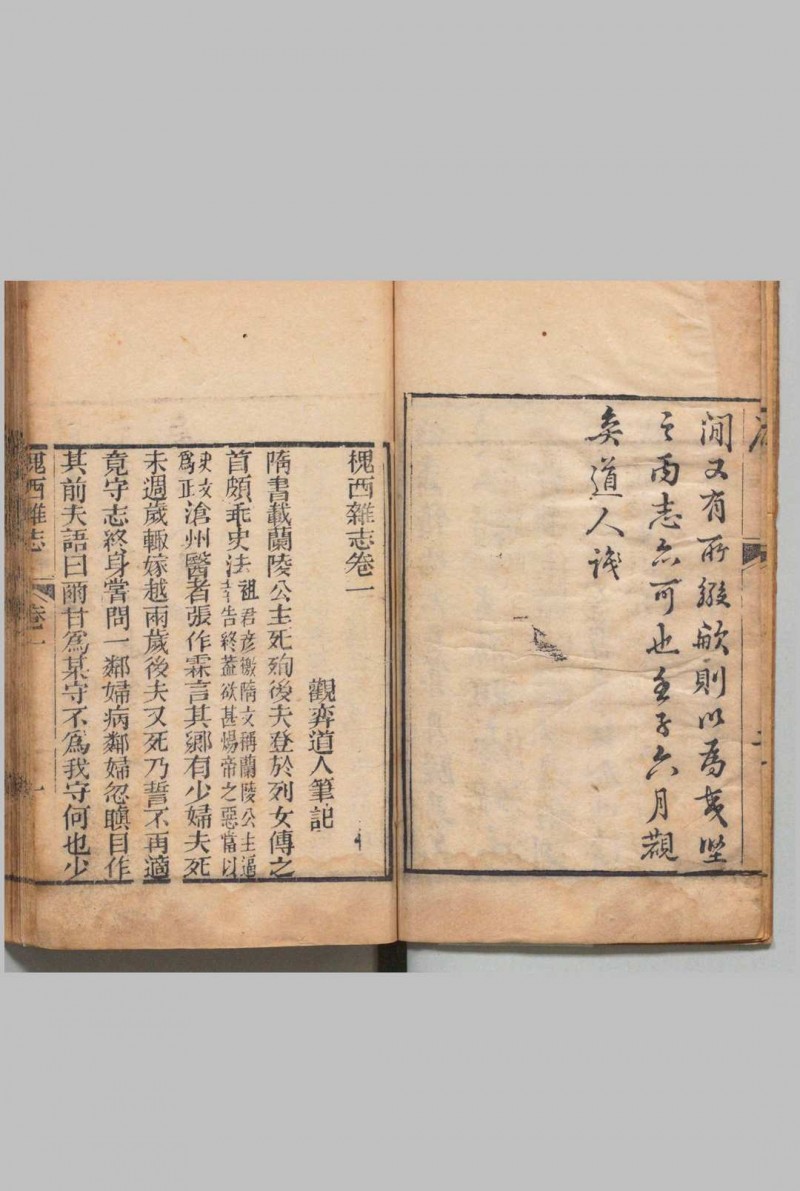 間又有所綴緝則以為夷堅
之丙志亦可也壬子六月觀
弈道人識
槐西雜志卷一
觀弈道人筆記
隋書載蘭陵公主死殉後夫登於列女傳之
首頗乖史法祖君彥檄隋文稱蘭陵公主逼
幸告終葢欲甚煬帝之惡當以
史文
為正滄州醫者張作霖言其鄉有少婦夫死
未週歲輙嫁越兩歲後夫又死乃誓不再適
竟守志終身嘗問一鄰婦病鄰婦忽瞋目作
其前夫語曰爾甘為某守不為我守何也少
槐西雜志 卷一 一